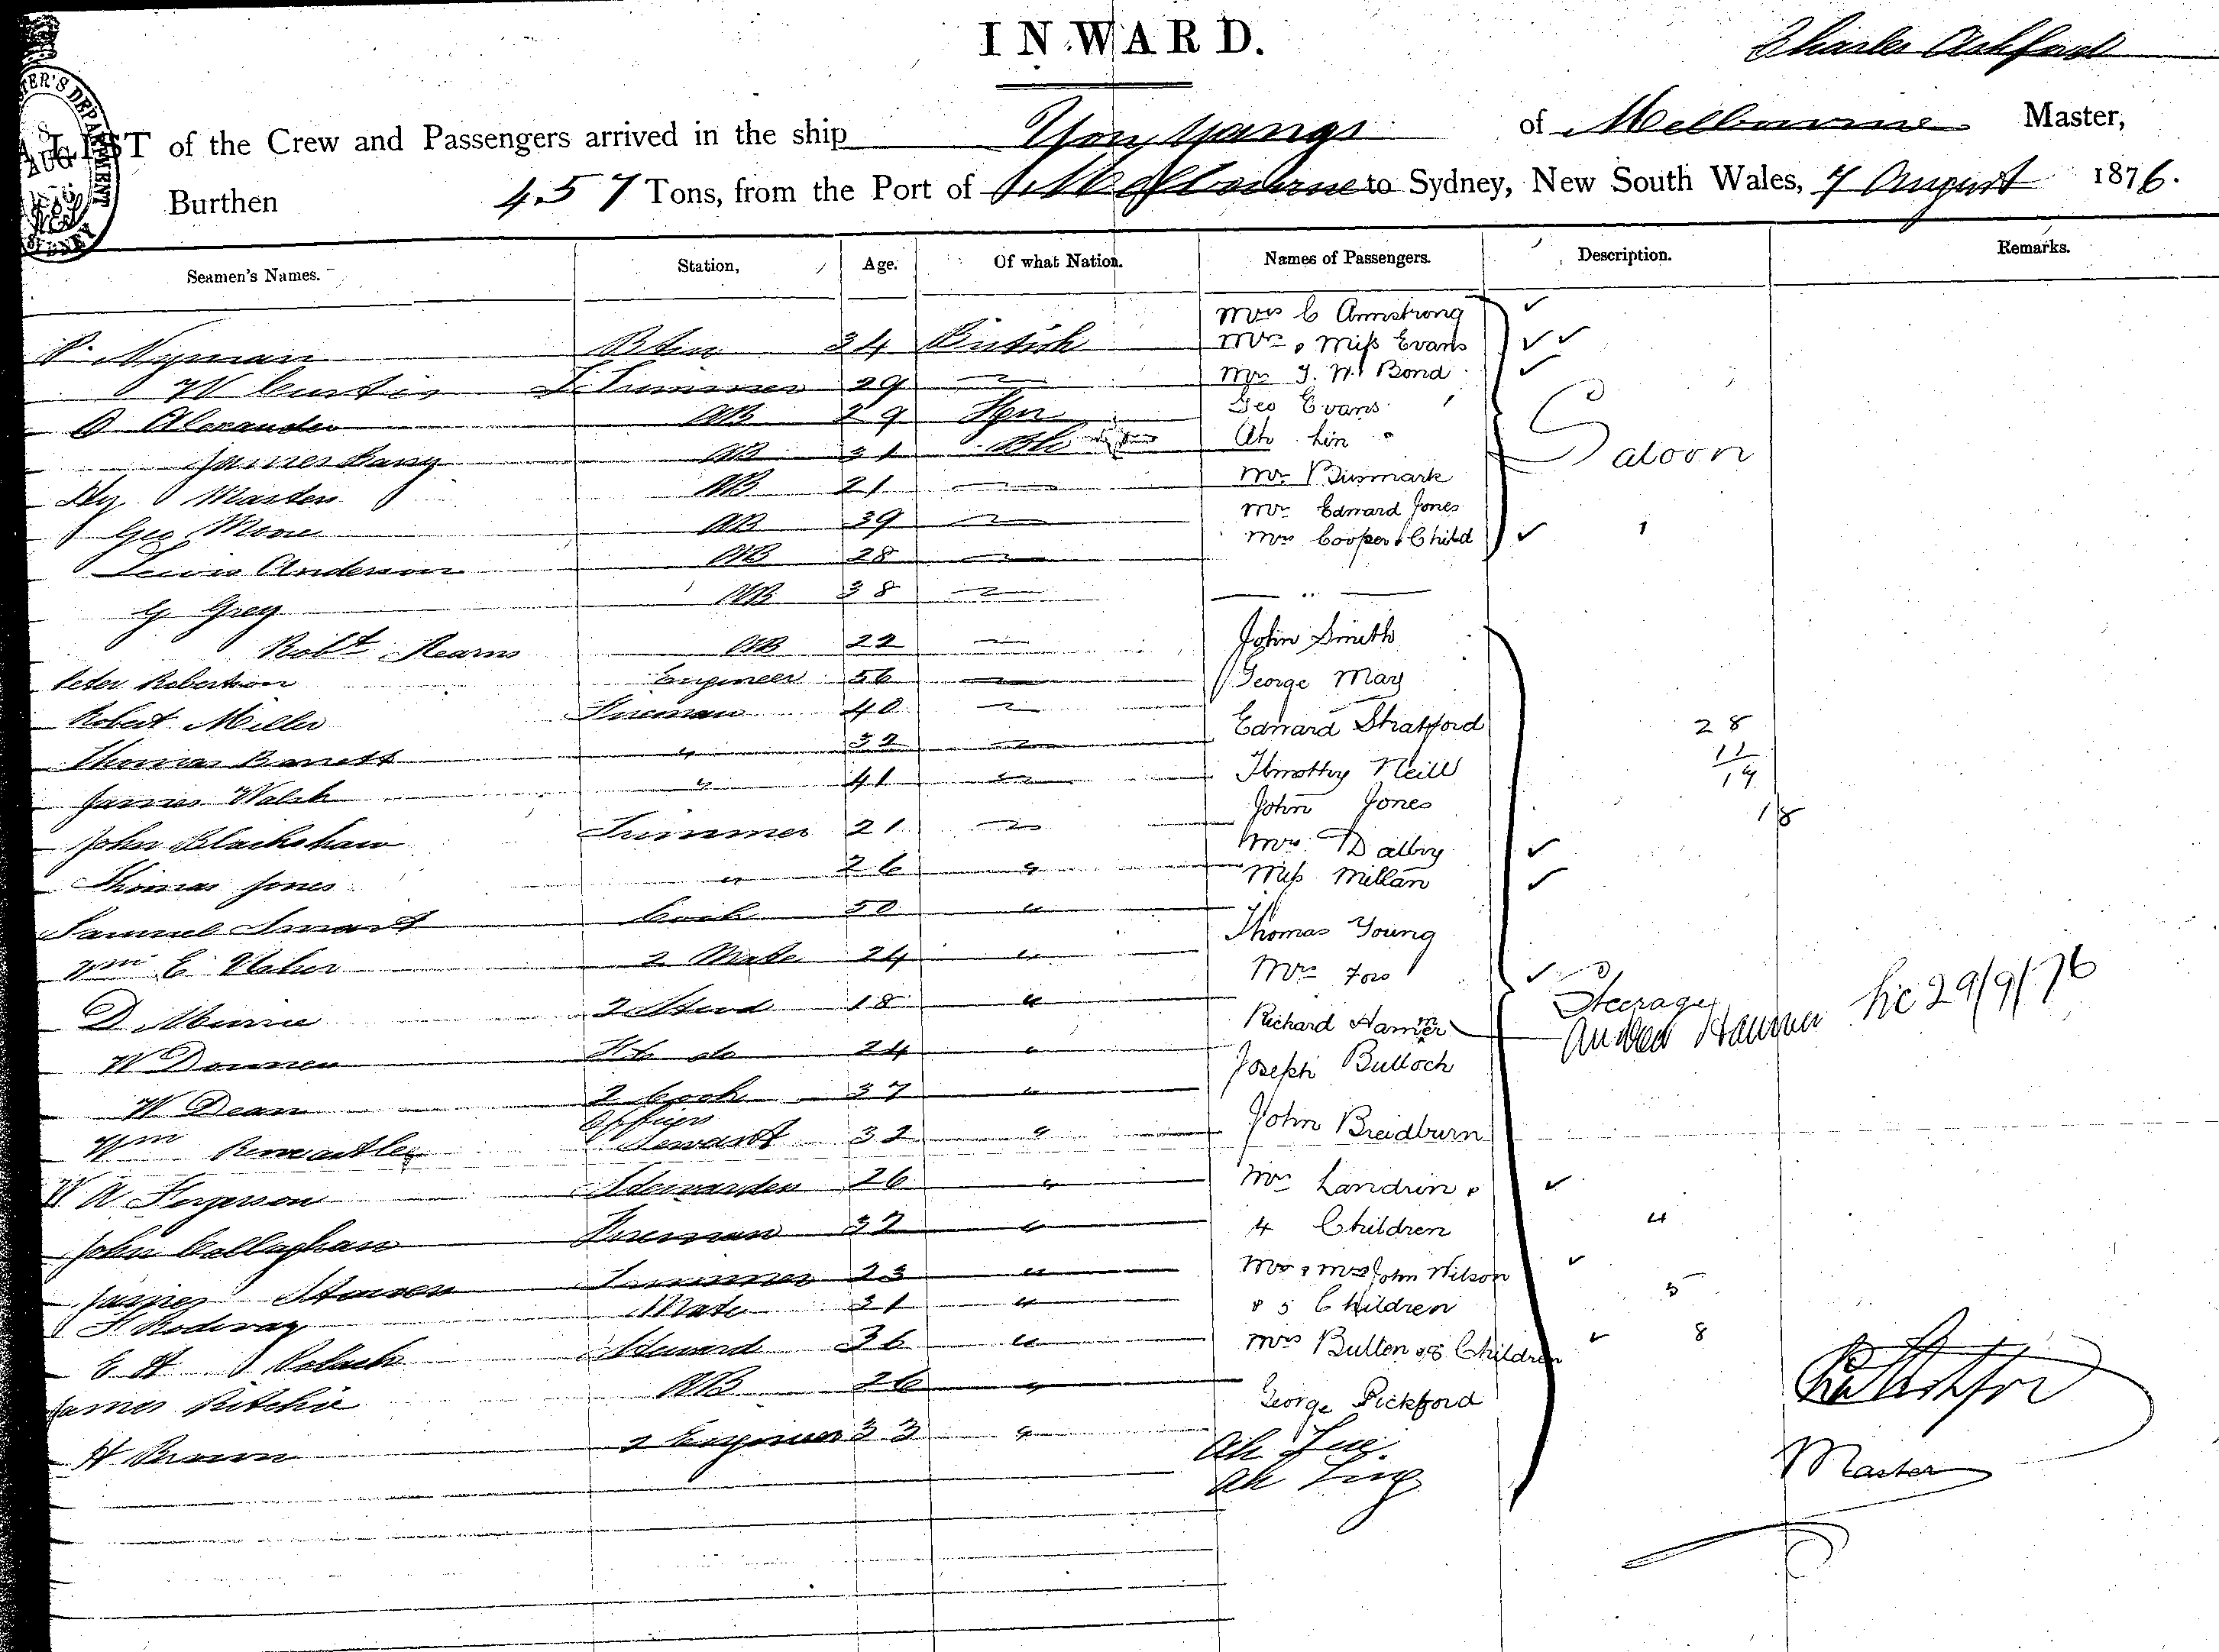 INWARD.
Charles Ashford
A LIST of the Crew and Passengers arrived in the ship You Yangs of Melbourne Master,
Burthen 457 Tons, from the Port of Melbourne to Sydney, New South Wales, 7 August 1876.
Seamen's Names. Station, Age. Of what Nation. Names of Passengers. Description. Remarks.
Mrs C Armstrong
P. Nyman 34 British Mrs & Miss Evans
W Curtis Trimmer 29 Mr J. W. Bond
O Alexander AB 29 Geo Evans
James Lang AB 31 Ah Lin Saloon
Hy Marden AB 21 Mr Bismark
Geo Mone AB 39 Mr Edward Jones
Lewis Anderson AB 28 Mrs Cooper & Child 1
G Grey AB 38 — " —
Robt Kearns AB 22 John Smith
Peter Robertson Engineer 56 George May
Robert Miller Fireman 40 Edward Stratford 28
Thomas Barrett " 32 11
James Walsh " 41 Timothy Neill 19
John Blackshaw Trimmer 21 John Jones 18
Mrs Dalby
Thomas Jones " 26 " Miss Millan
Samuel Smart Cook 50 " Thomas Young
Wm E 2 Mate 24 " Mrs Fow
D 18 " Steerage
W 24 " Richard Hamer Andrew Hanmer 29/9/76
W Dean 2 Cook 37 " Joseph Bulloch
Wm Officers Steward 32 " John Breidburn
W A Fergerson Stewardess 26 " Mrs Landrin &
John Callaghan Fireman 32 " 4 Children 4
James Trimmer 23 " Mr & Mrs John Wilson
F Rodway Mate 31 " & 5 Children 5
E H Steward 36 " Mrs Bulten & 8 Children 8
James Ritchie AB 26 " George Pickford
H Brown 2 Engineer 33 " Ah
Ah Ling
Master